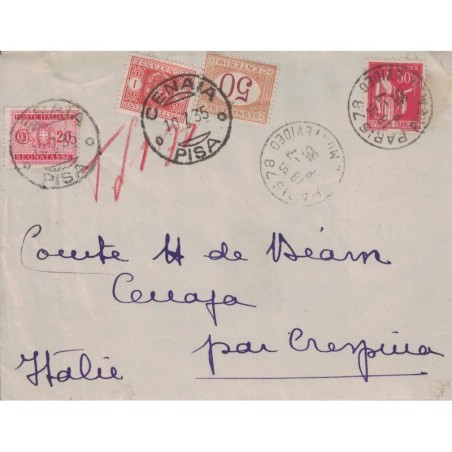 CENAIA
PISA
POSTE ITALIANE
20
SEGNATASSE
SEGNATASSE
1
50
CENAIA
10.7.35
PISA
PARIS 78
R. MONTEVIDEO
50c
PARIS 78
Comte H de Béarn
Cenaja
par Crespina
Italie